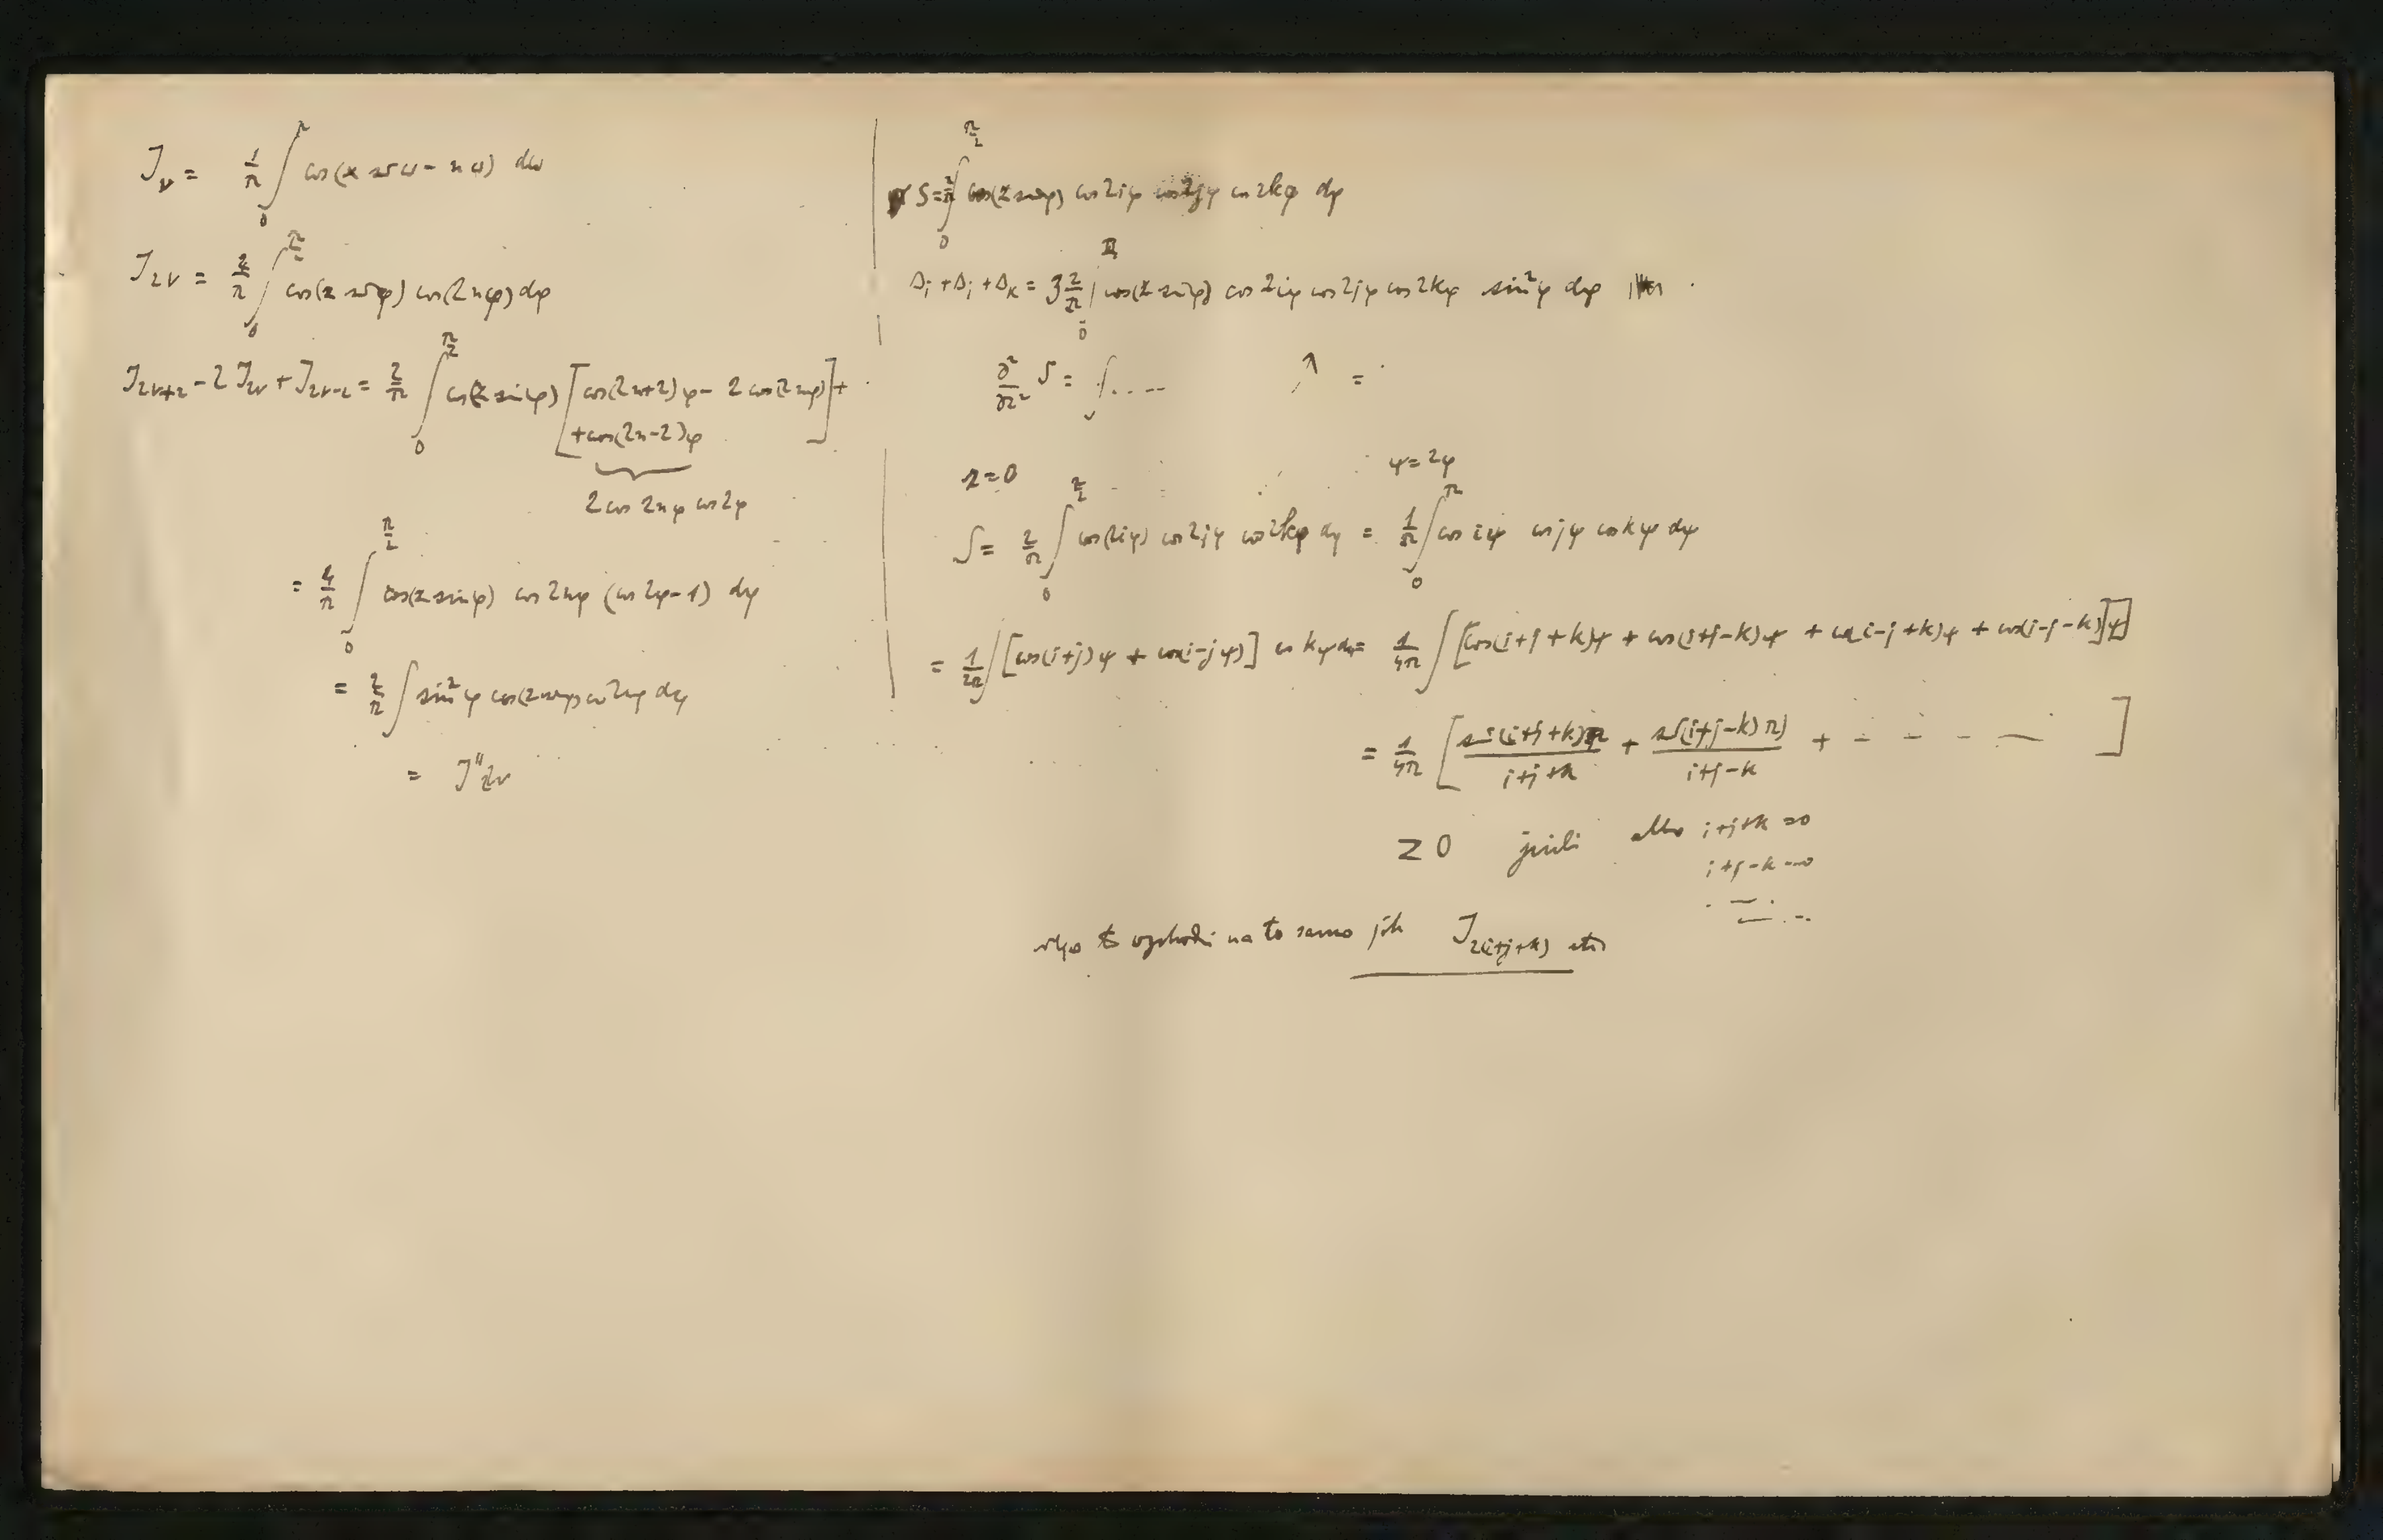 J_ν = 1/π ∫_0^π cos(x sin ω − nω) dω
J_2ν = 2/π ∫_0^{π/2} cos(z sin φ) cos(2nφ) dφ
J_{2ν+2} − 2 J_{2ν} + J_{2ν−2} = 2/π ∫_0^{π/2} cos(z sin φ) [cos(2n+2)φ − 2 cos(2nφ)] +
+ cos(2n−2)φ
2 cos 2nφ cos 2φ
= 4/π ∫_0^{π/2} cos(z sin φ) cos 2nφ (cos 2φ − 1) dφ
= 2/π ∫ sin²φ cos(z sin φ) cos 2nφ dφ
= J''_{2ν}
S = 2/π ∫_0^{π/2} cos(z sin φ) cos 2iφ cos 2jφ cos 2kφ dφ
Δ_i + Δ_j + Δ_k = 3 2/π ∫_0 cos(z sin φ) cos 2iφ cos 2jφ cos 2kφ sin²φ dφ
∂²/∂z² S = ∫.... ↗ =
z = 0 ψ = 2φ
S = 2/π ∫_0^{π/2} cos(2iφ) cos 2jφ cos 2kφ dφ = 1/π ∫_0^π cos iψ cos jψ cos kψ dψ
= 1/2π ∫ [cos(i+j)ψ + cos(i−jψ)] cos kψ dψ = 1/4π ∫ [cos(i+j+k)ψ + cos(i+j−k)ψ + cos(i−j+k)ψ + cos(i−j−k)ψ]
= 1/4π [sin(i+j+k)π / i+j+k + sin(i+j−k)π / i+j−k + − − − − ]
≥ 0 jeżeli albo i+j+k = 0
i+j−k = 0
tylko to wychodzi na to samo jak J_{2(i+j+k)} etc